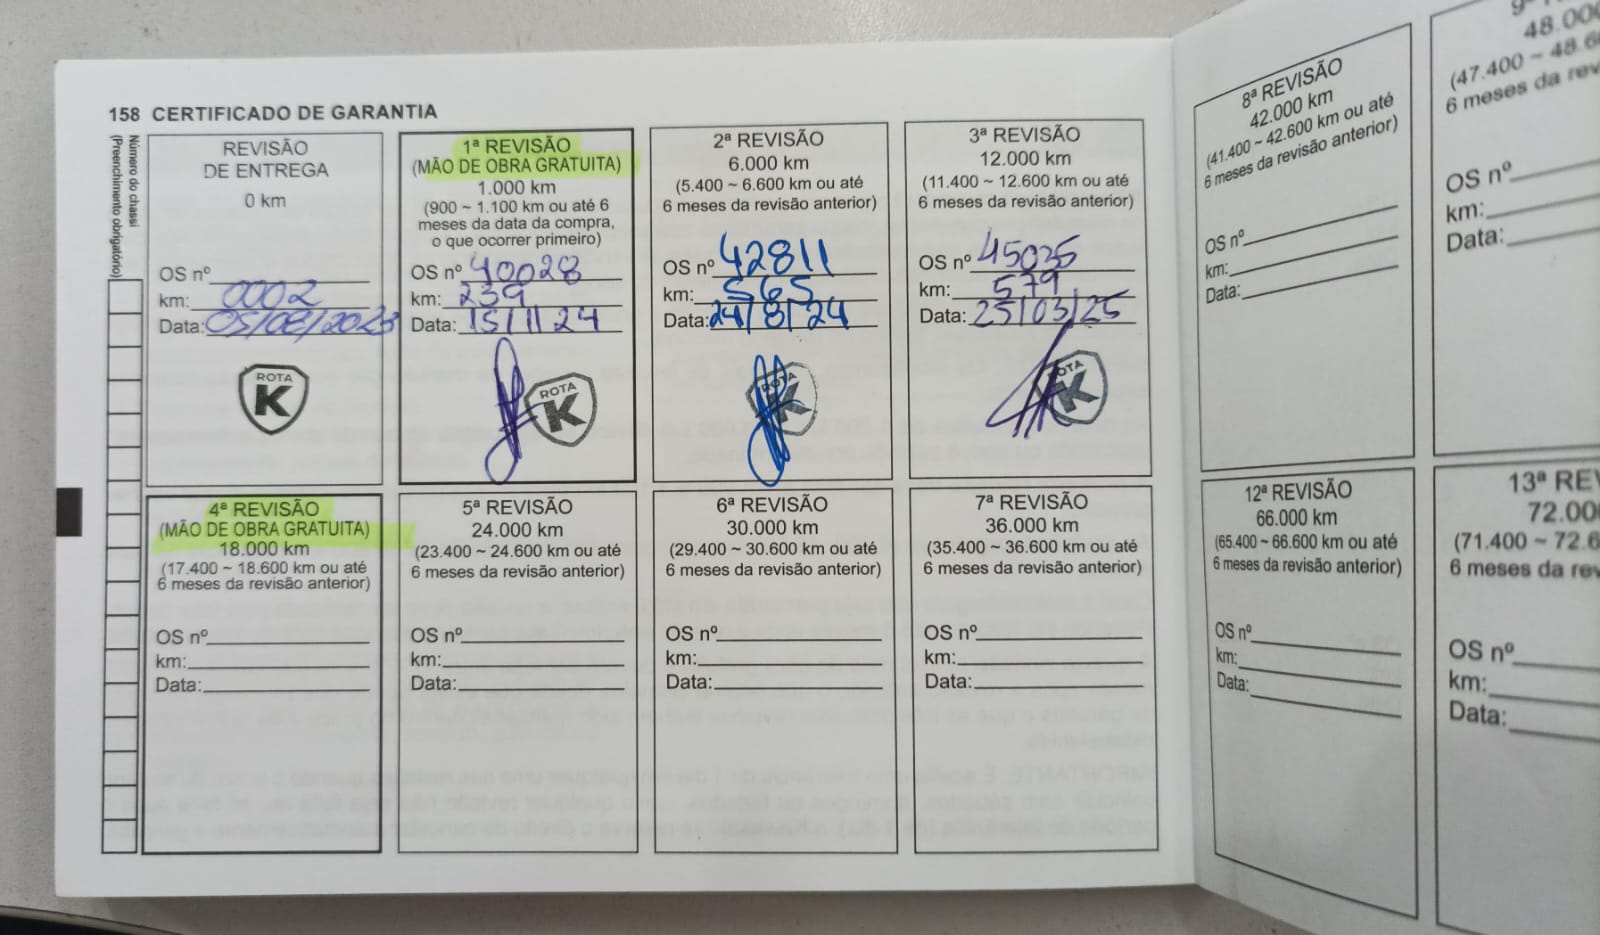 158 CERTIFICADO DE GARANTIA
Número do chassi
(Preenchimento obrigatório)
REVISÃO
DE ENTREGA
0 km
OS nº
km: 0002
Data: 05/08/2023
ROTA
K
1ª REVISÃO
(MÃO DE OBRA GRATUITA)
1.000 km
(900 ~ 1.100 km ou até 6
meses da data da compra,
o que ocorrer primeiro)
OS nº 40028
km: 239
Data: 15/11/24
ROTA
K
2ª REVISÃO
6.000 km
(5.400 ~ 6.600 km ou até
6 meses da revisão anterior)
OS nº 42811
km: 565
Data: 24/8/24
ROTA
K
3ª REVISÃO
12.000 km
(11.400 ~ 12.600 km ou até
6 meses da revisão anterior)
OS nº 45035
km: 579
Data: 25/03/25
ROTA
K
4ª REVISÃO
(MÃO DE OBRA GRATUITA)
18.000 km
(17.400 ~ 18.600 km ou até
6 meses da revisão anterior)
OS nº
km:
Data:
5ª REVISÃO
24.000 km
(23.400 ~ 24.600 km ou até
6 meses da revisão anterior)
OS nº
km:
Data:
6ª REVISÃO
30.000 km
(29.400 ~ 30.600 km ou até
6 meses da revisão anterior)
OS nº
km:
Data:
7ª REVISÃO
36.000 km
(35.400 ~ 36.600 km ou até
6 meses da revisão anterior)
OS nº
km:
Data:
8ª REVISÃO
42.000 km
(41.400 ~ 42.600 km ou até
6 meses da revisão anterior)
OS nº
km:
Data:
9ª
48.00
(47.400 ~ 48.6
6 meses da rev
OS nº
km:
Data:
12ª REVISÃO
66.000 km
(65.400 ~ 66.600 km ou até
6 meses da revisão anterior)
OS nº
km:
Data:
13ª REV
72.00
(71.400 ~ 72.6
6 meses da rev
OS nº
km:
Data: